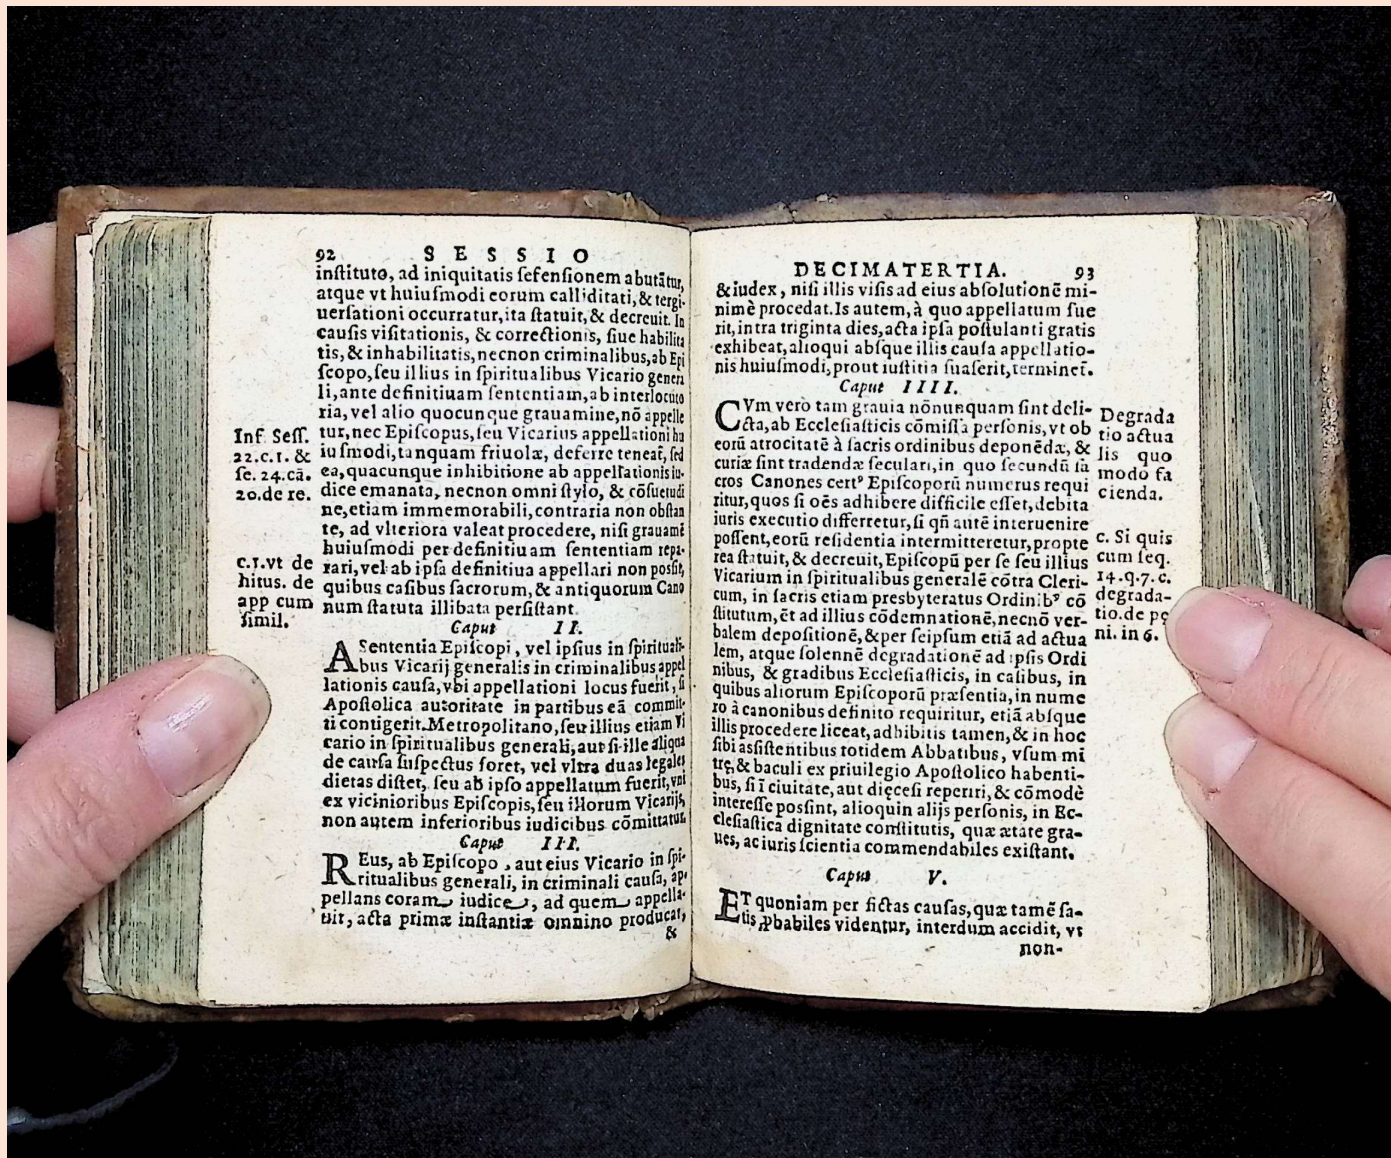 92 SESSIO
inſtituto, ad iniquitatis ſefenſionem abutãtur,
atque vt huiuſmodi eorum calliditati, & tergi-
uerſationi occurratur, ita ſtatuit, & decreuit. In
cauſis viſitationis, & correctionis, ſiue habilita
tis, & inhabilitatis, necnon criminalibus, ab Epi
ſcopo, ſeu illius in ſpiritualibus Vicario genera
li, ante definitiuam ſententiam, ab interlocuto
ria, vel alio quocunque grauamine, nõ appelle
tur, nec Epiſcopus, ſeu Vicarius appellationi hu
iuſmodi, tanquam friuolæ, deferre teneat̃, ſed
ea, quacunque inhibitione ab appellationis iu-
dice emanata, necnon omni ſtylo, & cõſuetudi
ne, etiam immemorabili, contraria non obſtan
te, ad vlteriora valeat procedere, niſi grauamẽ
huiuſmodi per definitiuam ſententiam repa-
rari, vel ab ipſa definitiua appellari non poſſit,
quibus caſibus ſacrorum, & antiquorum Cano
num ſtatuta illibata perſiſtant.
Inf. Seſſ.
22.c.1. &
ſe. 24.cã.
20.de re.
c.1.vt de
hitus. de
app cum
ſimil.
Caput II.
A Sententia Epiſcopi, vel ipſius in ſpirituali-
bus Vicarij generalis in criminalibus appel
lationis cauſa, vbi appellationi locus fuerit, ſi
Apoſtolica autoritate in partibus eã commit-
ti contigerit. Metropolitano, ſeu illius etiam Vi
cario in ſpiritualibus generali, aut ſi ille aliqua
de cauſa ſuſpectus foret, vel vltra duas legales
dietas diſtet, ſeu ab ipſo appellatum fuerit, vni
ex vicinioribus Epiſcopis, ſeu illorum Vicarijs,
non autem inferioribus iudicibus cõmittatur.
Caput III.
REus, ab Epiſcopo, aut eius Vicario in ſpi-
ritualibus generali, in criminali cauſa, ap-
pellans coram iudice, ad quem appella-
uit, acta primæ inſtantiæ omnino producat,
&
DECIMATERTIA. 93
& iudex, niſi illis viſis ad eius abſolutionẽ mi-
nimè procedat. Is autem, à quo appellatum fue
rit, intra triginta dies, acta ipſa poſtulanti gratis
exhibeat, alioqui abſque illis cauſa appellatio-
nis huiuſmodi, prout iuſtitia ſuaſerit, terminet̃.
Caput IIII.
CVm verò tam grauia nõnunquam ſint deli-
cta, ab Eccleſiaſticis cõmiſſa perſonis, vt ob
eorũ atrocitatẽ à ſacris ordinibus deponẽdæ, &
curiæ ſint tradendæ ſeculari, in quo ſecundũ ſa
cros Canones certꝰ Epiſcoporũ numerus requi
ritur, quos ſi oẽs adhibere difficile eſſet, debita
iuris executio differretur, ſi qñ autẽ interuenire
poſſent, eorũ reſidentia intermitteretur, propte
rea ſtatuit, & decreuit, Epiſcopũ per ſe ſeu illius
Vicarium in ſpiritualibus generalẽ cõtra Cleri-
cum, in ſacris etiam presbyteratus Ordinibꝰ cõ
ſtitutum, ẽt ad illius cõdemnationẽ, necnõ ver-
balem depoſitionẽ, & per ſeipſum etiã ad actua
lem, atque ſolennẽ degradationẽ ad ipſis Ordi
nibus, & gradibus Eccleſiaſticis, in caſibus, in
quibus aliorum Epiſcoporũ præſentia, in nume
ro à canonibus definito requiritur, etiã abſque
illis procedere liceat, adhibitis tamen, & in hoc
ſibi aſſiſtentibus totidem Abbatibus, vſum mi
trę, & baculi ex priuilegio Apoſtolico habenti-
bus, ſi ĩ ciuitate, aut dięceſi reperiri, & cõmodè
intereſſe poſſint, alioquin alijs perſonis, in Ec-
cleſiaſtica dignitate conſtitutis, quæ ætate gra-
ues, ac iuris ſcientia commendabiles exiſtant.
Degrada
tio actua
lis quo
modo fa
cienda.
c. Si quis
cum ſeq.
14.q.7.c.
degrada-
tio.de pę
ni. in 6.
Caput V.
ET quoniam per fictas cauſas, quæ tamẽ ſa-
tis ꝓbabiles videntur, interdum accidit, vt
non-